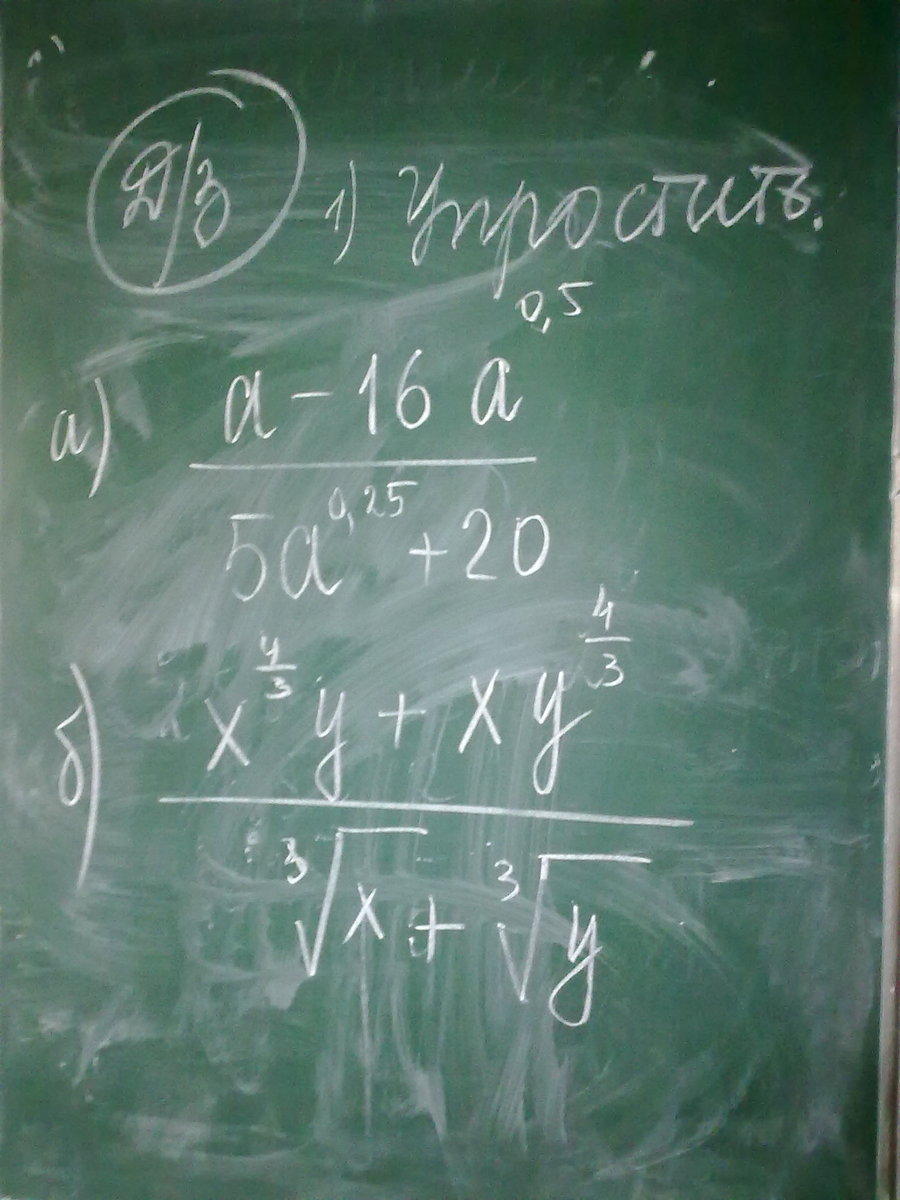 Д/З 1) Упростить.
а) \frac{a - 16 a^{0,5}}{5a^{0,25} + 20}
б) \frac{x^{\frac{4}{3}} y + x y^{\frac{4}{3}}}{\sqrt[3]{x} + \sqrt[3]{y}}